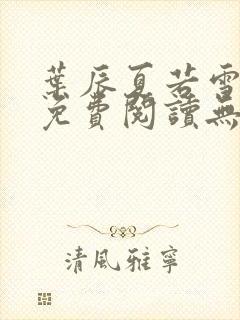 葉辰夏若雪
免費閱讀無
清風雅寧